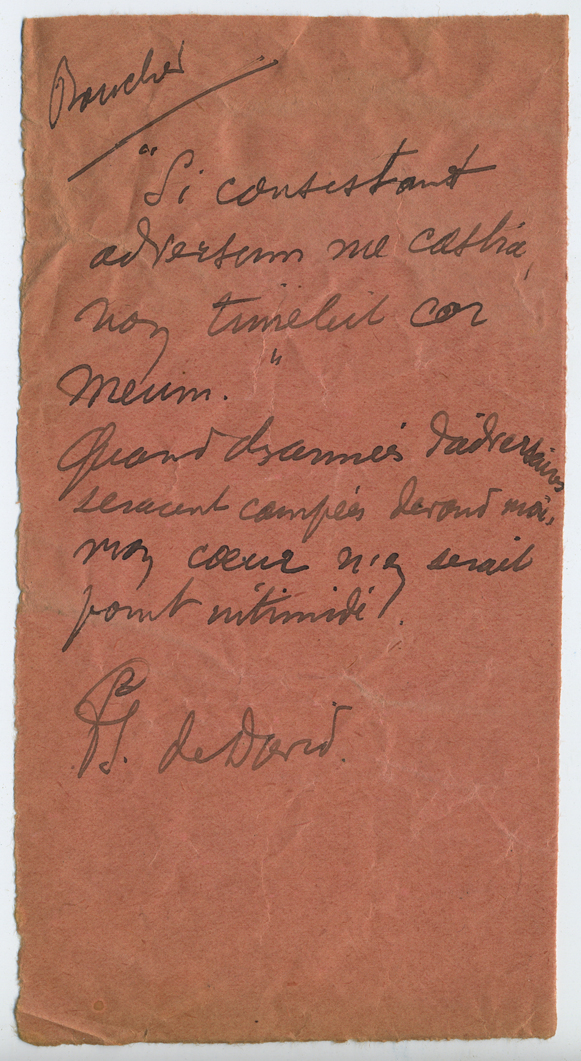 Boucher
"Si consistant
adversum me castra,
non timebit cor
meum."
Quand des armées d'adversaires
seraient campées devant moi,
mon cœur n'en serait
point intimidé.
Ps. de David.